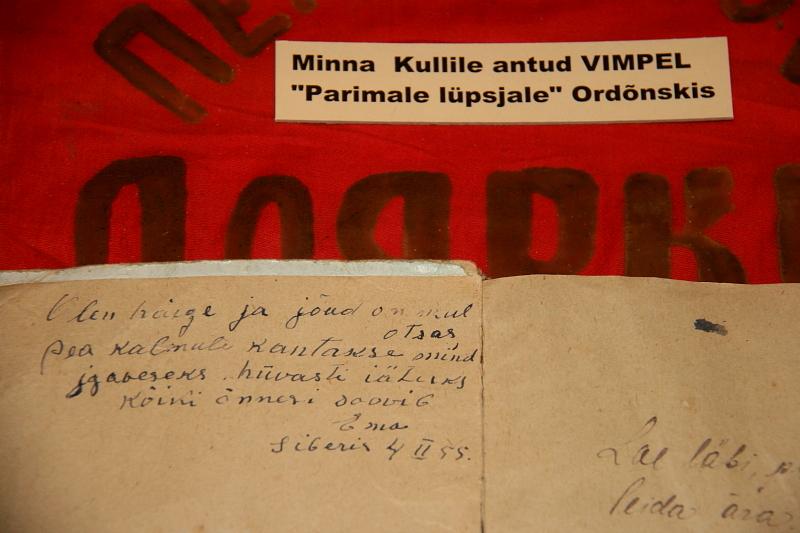 Minna Kullile antud VIMPEL
"Parimale lüpsjale" Ordõnskis
ДОЯРК
Olen haige ja jõud on mul
otsas
pea kalmule kantakse mind
igaveseks hüvasti jätuks
kõiki õnnesi soovib
Ema
Siberis 4 II 55.
Lae läbi,
leida ära